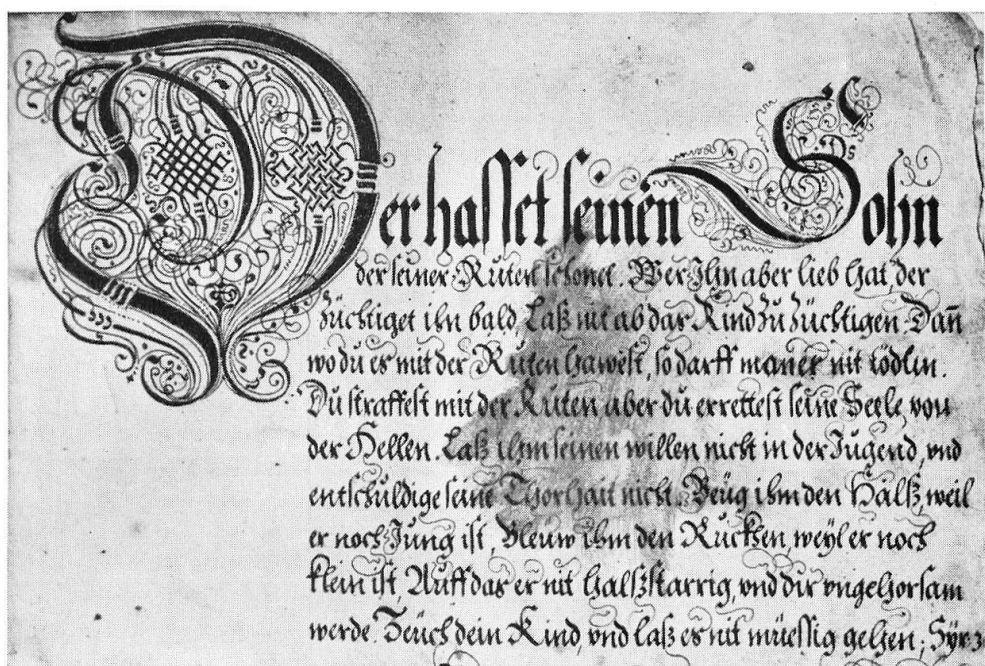 Der hasset seinen Sohn
der seiner Ruten schonet. Wer Ihn aber lieb hat, der
Züchtiget ihn bald, Laß nit ab das Kind Zu Züchtigen. Dañ
wo du es mit der Ruten hawest, so darff maners nit tödtin.
Du straffest mit der Ruten aber du errettest seine Seele von
der Hellen. Laß ihm seinen willen nicht in der Jugend, vnd
entschuldige seine Thorhait nicht. Beüg ihm den Halß, weil
er noch Jung ist, Bleuw ihm den Ruckhen, weyl er noch
klein ist, Auff das er nit halßstarrig, vnd dir vngehorsam
werde. Zeüch dein Kind, vnd laß es nit müessig gehen; Syr: 3